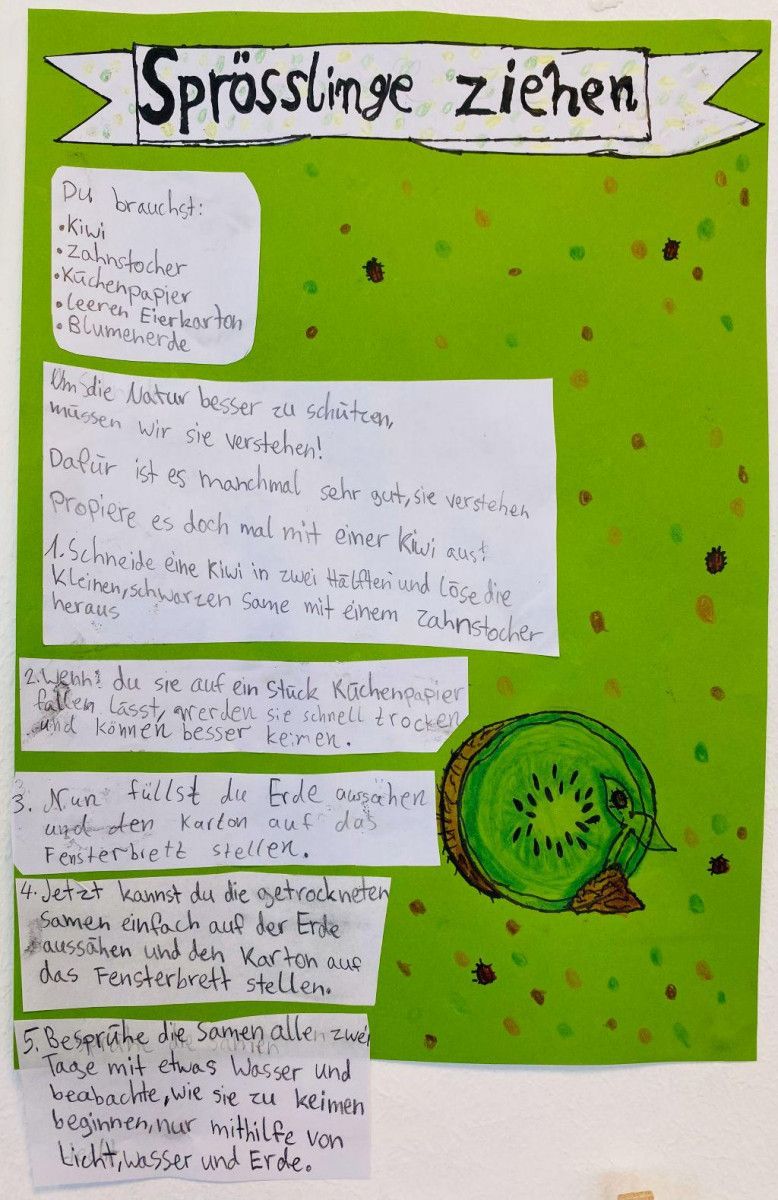 Sprösslinge ziehen
Du brauchst:
•Kiwi
•Zahnstocher
•Küchenpapier
•leeren Eierkarton
•Blumenerde
Um die Natur besser zu schützen,
müssen wir sie verstehen!
Dafür ist es manchmal sehr gut, sie verstehen
Propiere es doch mal mit einer Kiwi aus!
1. Schneide eine Kiwi in zwei Hälften und löse die
kleinen, schwarzen Same mit einem Zahnstocher
heraus
2. Wenn du sie auf ein Stück Küchenpapier
fallen lässt, werden sie schnell trocken
und können besser keimen.
3. Nun füllst du Erde aussähen
und den Karton auf das
Fensterbrett stellen.
4. Jetzt kannst du die getrockneten
Samen einfach auf der Erde
aussähen und den Karton auf
das Fensterbrett stellen.
5. Besprühe die Samen allen zwei
Tage mit etwas Wasser und
beabachte, wie sie zu keimen
beginnen, nur mithilfe von
Licht, Wasser und Erde.